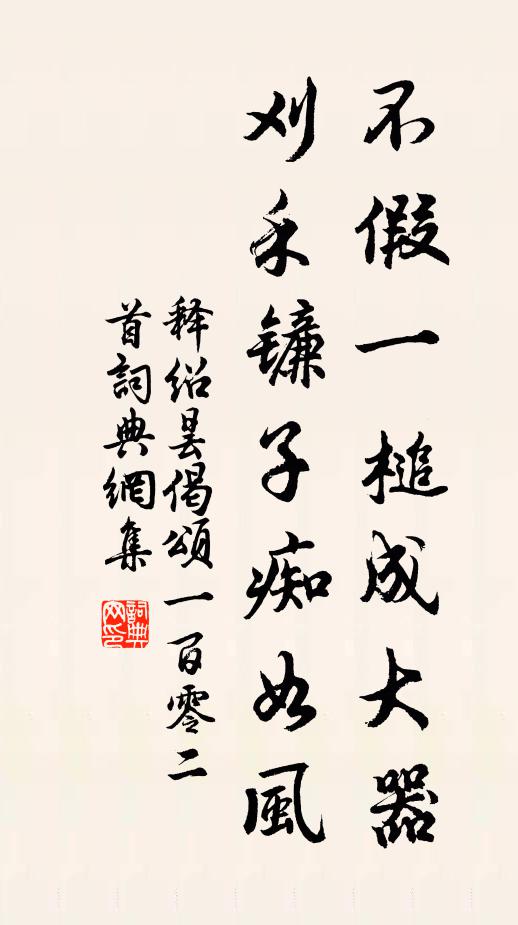 不假一槌成大器
刈禾镰子痴如風
释绍昙偈颂一百零二
首詞典網集
詞典
网印